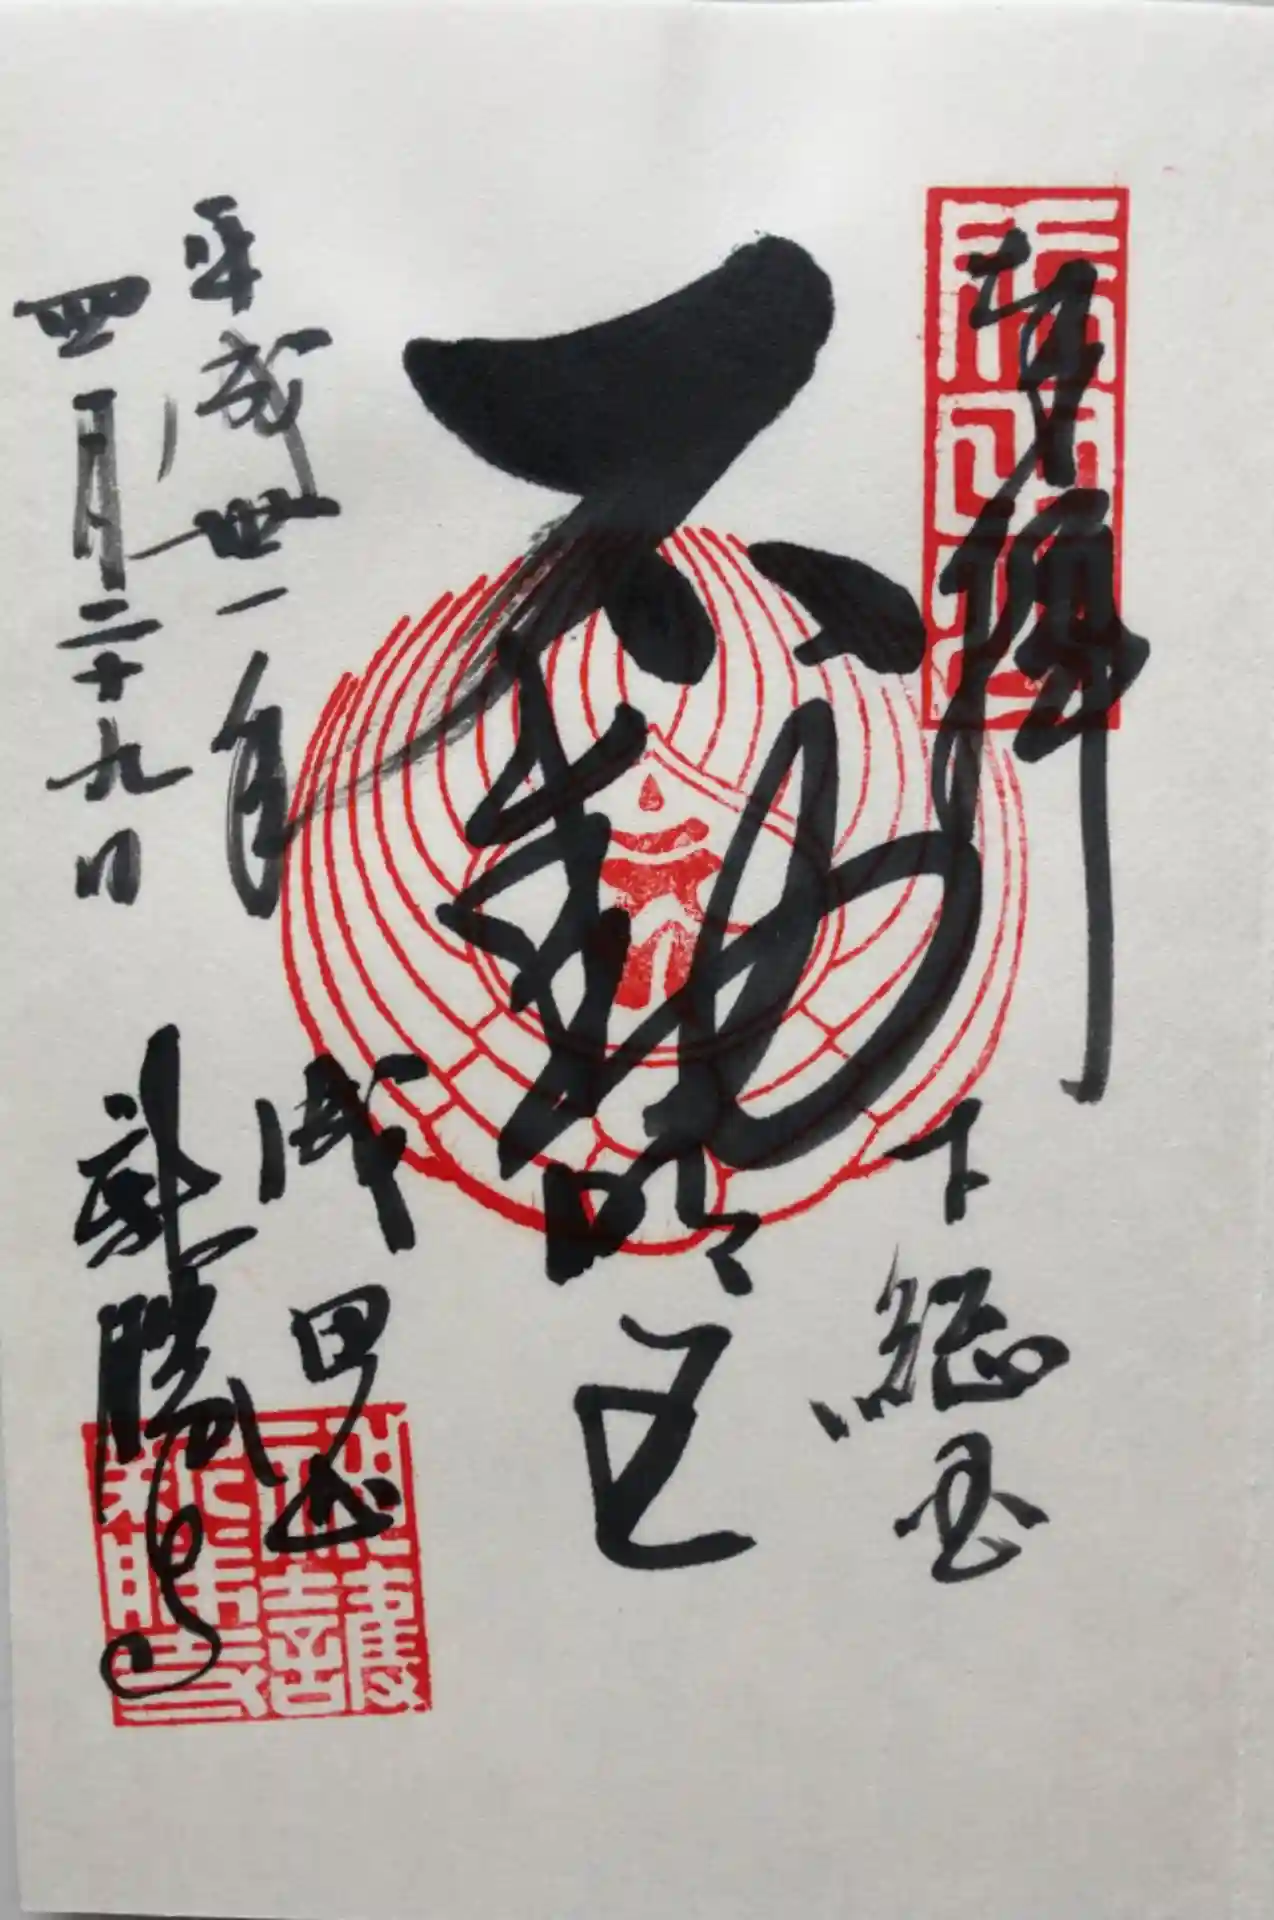 奉拝
下総国
不動明王
平成卅一年
四月二十九日
成田山
新勝寺
新勝寺